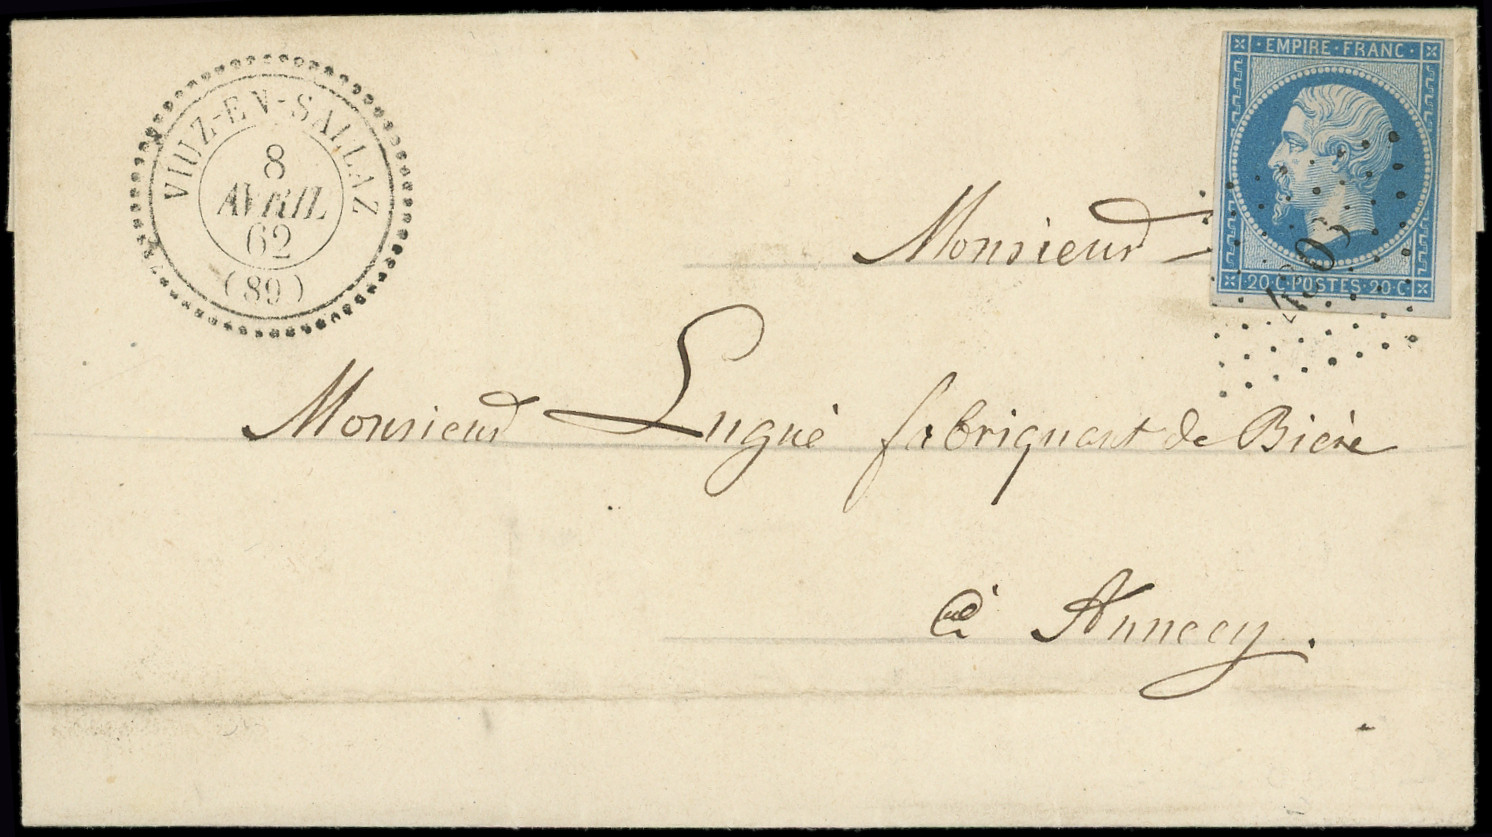 VIUZ-EN-SALLAZ
8
AVRIL
62
(89)
EMPIRE · FRANC ·
20 C · POSTES · 20 C
Monsieur
Monsieur Lugué fabriquant de Bière
à Annecy.